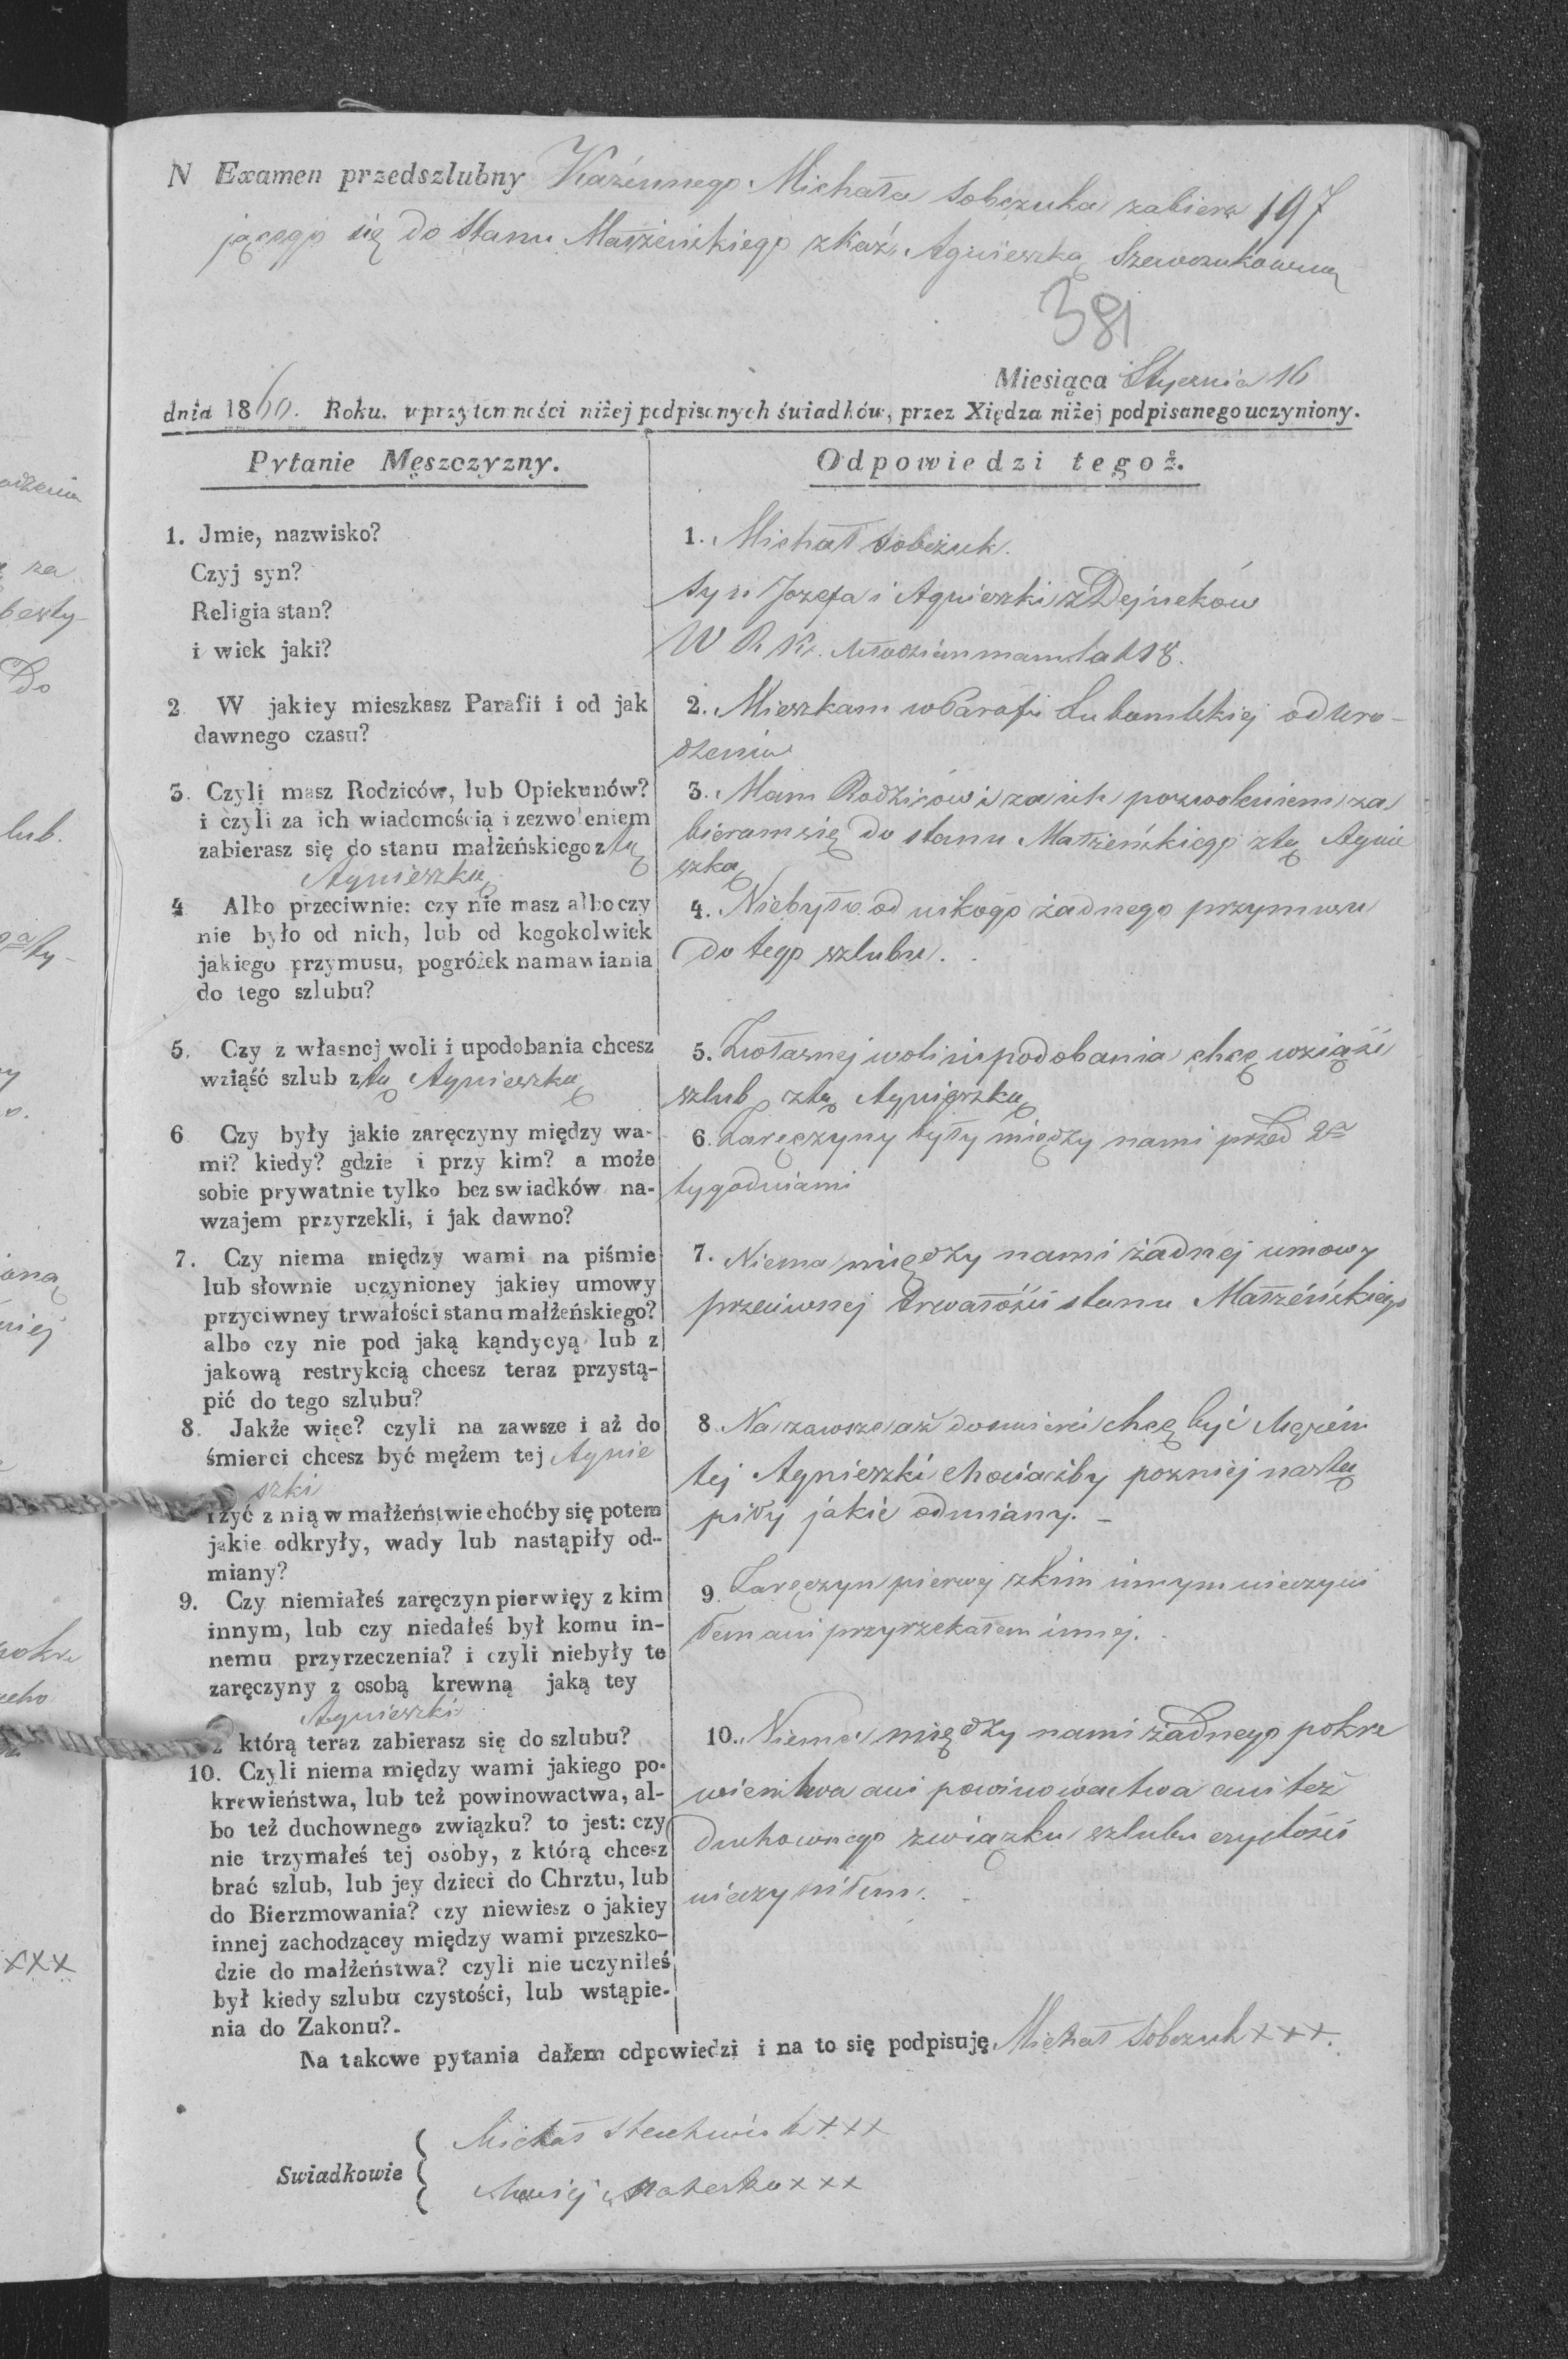 N Examen przedszlubny Kazénnego Michała Sobczuka zabiera 197
jącego się do Stanu Małżeńskiego z Kaź: Agnieszką Szewczukowną
381
Miesiąca Stycznia 16
dnia 1860. Roku. w przytomności niżej podpisanych świadków, przez Xiędza niżej podpisanego uczyniony.
Pytanie Męszczyzny.
Odpowiedzi tegoż.
1. Jmie, nazwisko?
Czyj syn?
Religia stan?
i wiek jaki?
1. Michał Sobczuk.
Syn Jozefa i Agnieszki z Dejneków
W R K. Młodzian mam lat 18.
2 W jakiey mieszkasz Parafii i od jak
dawnego czasu?
2. Mieszkam w Parafi Lubomlskiej od uro-
dzenia
3. Czyli masz Rodziców, lub Opiekunów?
i czyli za ich wiadomością i zezwoleniem
zabierasz się do stanu małżeńskiego z tą
Agnieszką
3. Mam Rodziców i za ich pozwoleniem za
bieram się do stanu Małżeńskiego z tą Agnie
szką
4 Albo przeciwnie: czy nie masz albo czy
nie było od nich, lub od kogokolwiek
jakiego przymusu, pogróżek namawiania
do tego szlubu?
4. Niebyło od nikogo żadnego przymusu
do tego szlubu.
5. Czy z własnej woli i upodobania chcesz
wziąść szlub z tą Agnieszką
5. Zwłasnej woli i upodobania chcę wziąść
szlub z tą Agnieszką
6 Czy były jakie zaręczyny między wa-
mi? kiedy? gdzie i przy kim? a może
sobie prywatnie tylko bez swiadków na-
wzajem przyrzekli, i jak dawno?
6. Zaręczyny były między nami przed 2ma
tygodniami
7. Czy niema między wami na piśmie
lub słownie uczynioney jakiey umowy
przyciwney trwałości stanu małżeńskiego?
albo czy nie pod jaką kąndycyą lub z
jakową restrykcią chcesz teraz przystą-
pić do tego szlubu?
7. Niema między nami żadnej umowy
przeciwnej trwałości stanu Małżeńskiego
8. Jakże więc? czyli na zawsze i aż do
śmierci chcesz być mężem tej Agnie
szki
i żyć z nią w małżeństwie choćby się potem
jakie odkryły, wady lub nastąpiły od-
miany?
8. Na zawsze aż do smierci chcę być Mężem
tej Agnieszki chociażby pozniej nastą
piły jakie odmiany. -
9. Czy niemiałeś zaręczyn pierwięy z kim
innym, lub czy niedałeś był komu in-
nemu przyrzeczenia? i czyli niebyły te
zaręczyny z osobą krewną jaką tey
Agnieszki
z którą teraz zabierasz się do szlubu?
9. Zaręczyn pierwej zkim innym nieczyni
łem ani przyrzekałem innej.
10. Czyli niema między wami jakiego po-
krewieństwa, lub też powinowactwa, al-
bo też duchownego związku? to jest: czy
nie trzymałeś tej osoby, z którą chcesz
brać szlub, lub jey dzieci do Chrztu, lub
do Bierzmowania? czy niewiesz o jakiey
innej zachodzącey między wami przeszko-
dzie do małżeństwa? czyli nie uczyniłeś
był kiedy szlubu czystości, lub wstąpie-
nia do Zakonu?
10. Niema między nami żadnego pokre
wienstwa ani powinowactwa ani też
duchownego związku szlubu czystości
nieczyniłem.
Na takowe pytania dałem odpowiedzi i na to się podpisuję Michał Sobczuk xxx.
Swiadkowie
Michał xxx
Maciej xxx